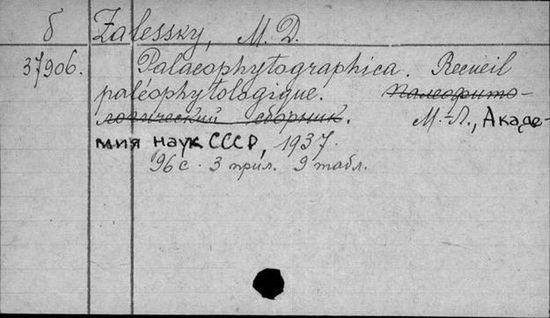 б Zalessky, M. D.
37906. Palaeophytographica. Recueil
paléophytologique. Палеофито-
логический сборник. М.-Л., Акаде-
мия наук СССР, 1937.
96 с. 3 прил. 9 табл.